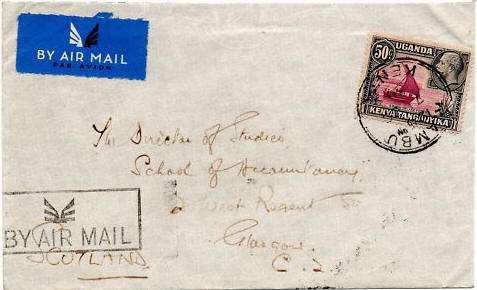 BY AIR MAIL
PAR AVION
50c
UGANDA
KENYA TANGANYIKA
The Director of Studies
School of Accountancy
2 West Regent St
Glasgow.
C. 2.
BY AIR MAIL
SCOTLAND